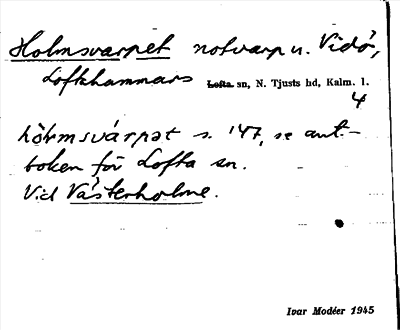 Holmsvarpet notvarp u. Vidö,
Loftahammars Lofta sn, N. Tjusts hd, Kalm. l.
4
hòlmsvárpət s. 147, se ant.-
boken för Lofta sn.
Vid Västerholme.
Ivar Modéer 1945